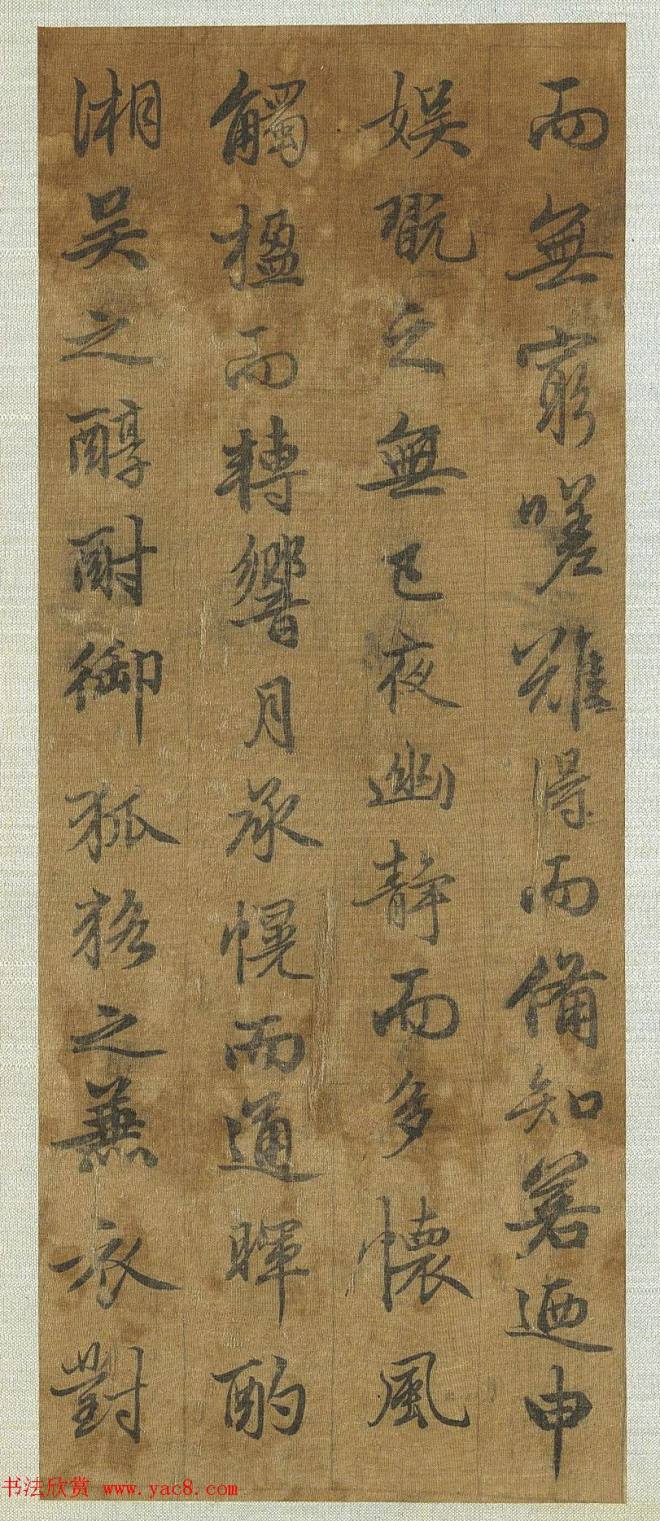 而無窮嗟難得而備知若迺申
娛翫之無已夜幽靜而多懷風
觸楹而轉響月承幌而通暉酌
湘吳之醇酎御狐狢之兼衣對
书法欣赏 www.yac8.com